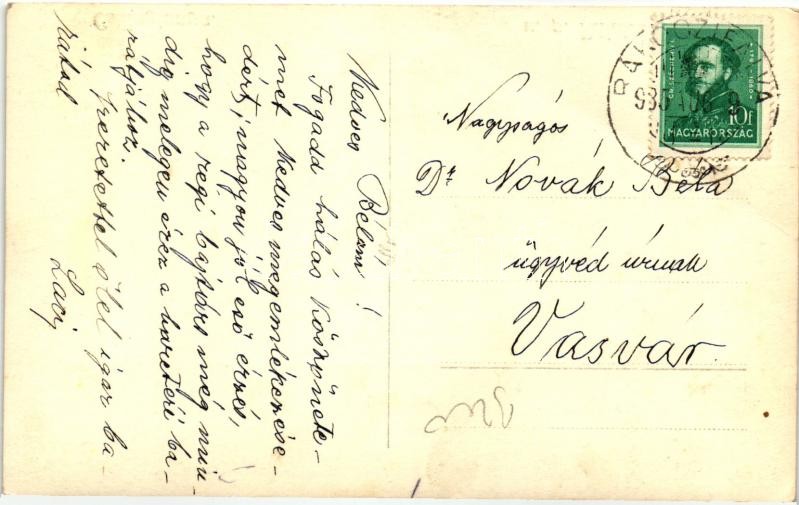 Kedves Bélám!
Fogadd hálás köszönete-
met kedves megemlékezése-
dért; nagyon jól eső érzés,
hogy a régi bajtárs még min-
dig melegen érez a
barátjához.
Szeretettel ölel igaz ba-
rátod
Laci
Nagyságos
Dr Novák Béla
ügyvéd úrnak
Vasvár.
10f
MAGYARORSZÁG